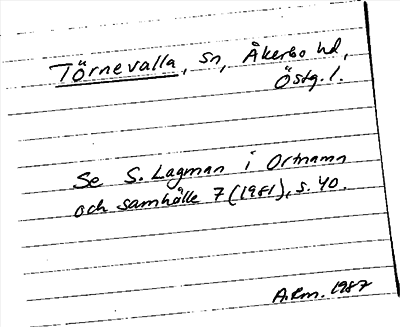 Törnevalla, sn, Åkerbo hd,
Östg. l.
Se S. Lagman i Ortnamn
och samhälle 7 (1981), s. 40.
A.Rm. 1987